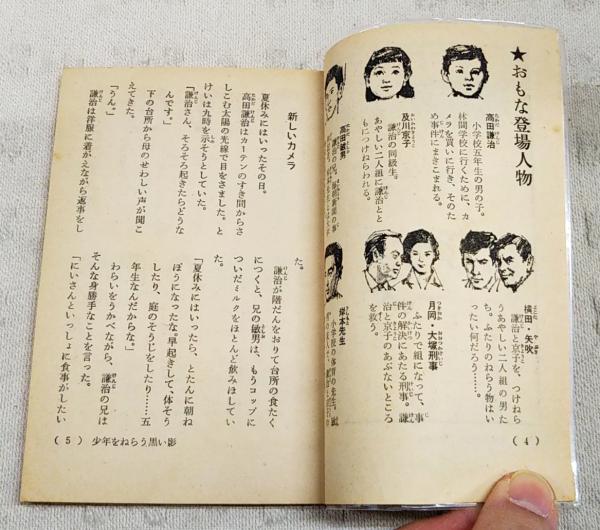 ★おもな登場人物
高田謙治
小学校五年生の男の子。
林間学校に行くために、カ
メラを買いに行き、そのた
め事件にまきこまれる。
及川京子
謙治の同級生。
あやしい二人組に謙治とと
もにつけねらわれる。
高田敏男
横田・矢吹
謙治と京子を、つけねら
うあやしい二人組の男た
ち。ふたりのねらう物はい
ったい何だろう……。
月岡・大塚刑事
ふたりで組になって、事
件の解決にあたる刑事。謙
治と京子のあぶないところ
を救う。
岸本先生
小学校の体育の先生。
(4)
新しいカメラ
夏休みにはいったその日。
高田謙治はカーテンのすき間からさ
しこむ太陽の光線で目をさました。と
けいは九時を示そうとしていた。
「謙治さん、そろそろ起きたらどうな
んです。」
下の台所から母のせわしい声が聞こ
えてきた。
「うん。」
謙治は洋服に着がえながら返事をし
た。
謙治が階だんをおりて台所の食たく
につくと、兄の敏男は、もうコップに
ついだミルクをほとんど飲みほしてい
た。
「夏休みにはいったら、とたんに朝ね
ぼうになったな。早起きして、体そう
したり、庭のそうじをしたり……五
年生なんだからな。」
わらいをうかべながら、謙治の兄は
そんな身勝手なことを言った。
「にいさんといっしょに食事がしたい
(5) 少年をねらう黒い影